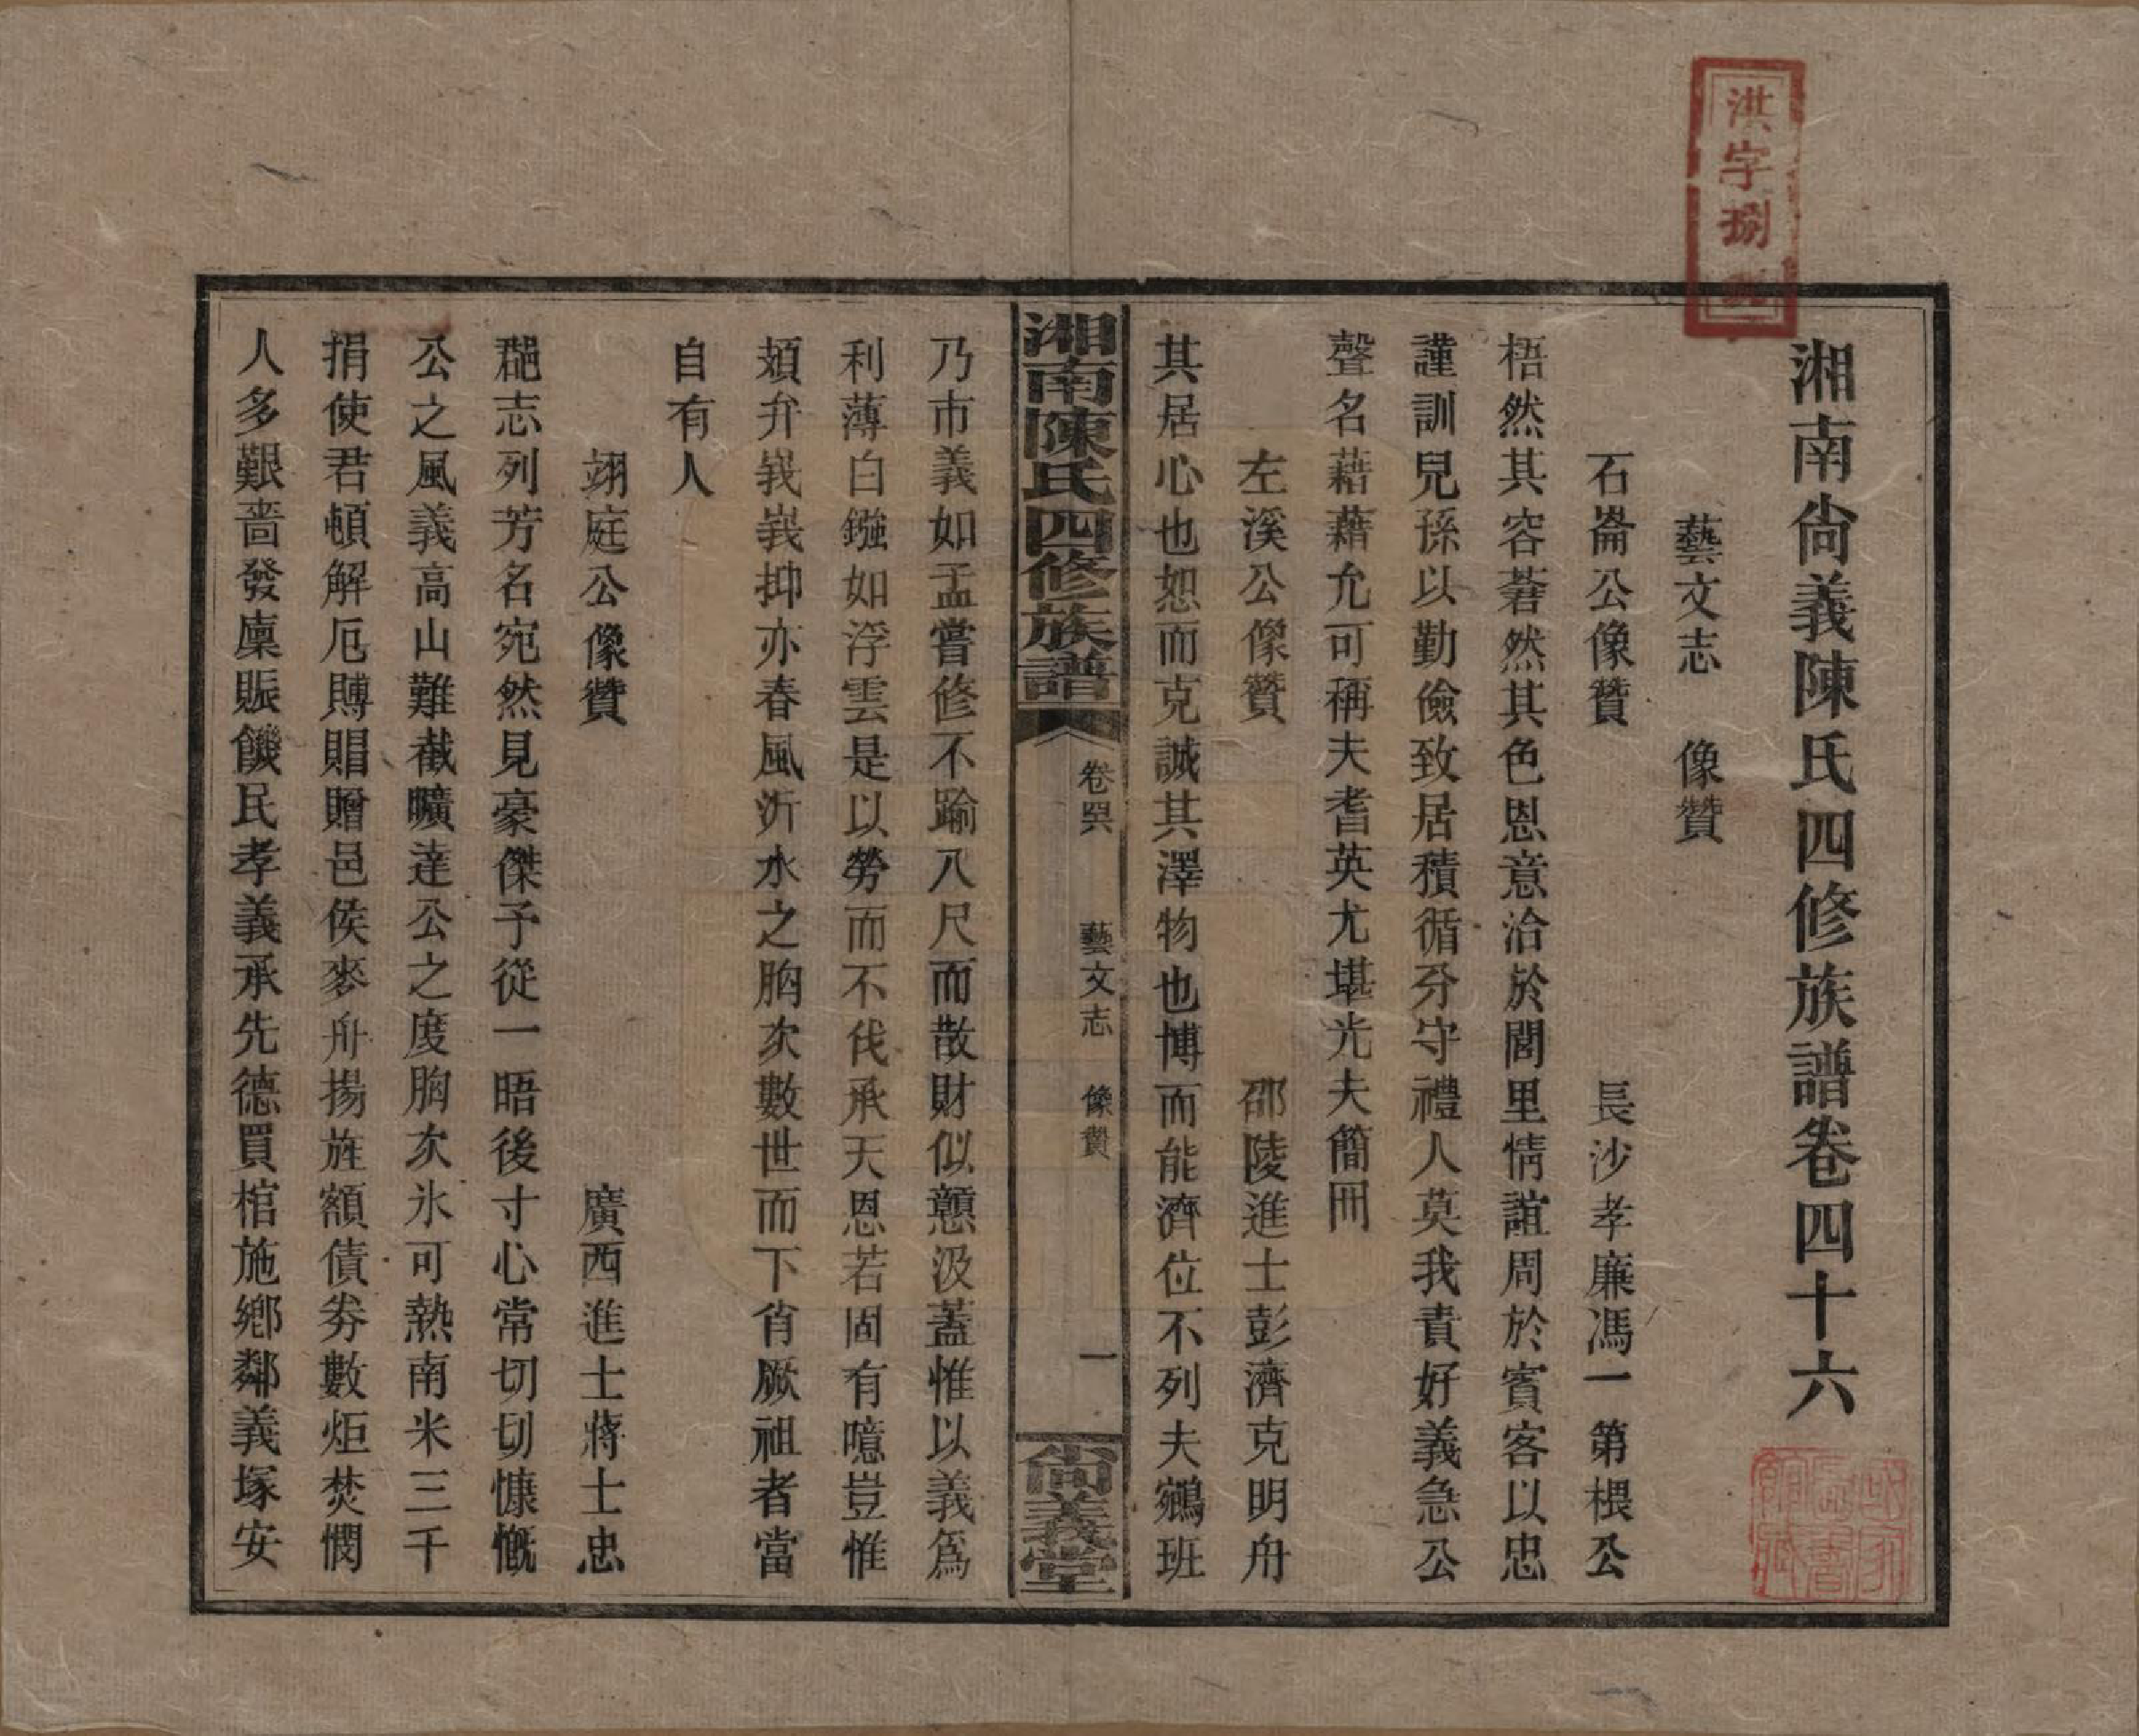 洪字捌
湘南尙義陳氏四修族譜卷四十六
藝文志　像贊
石崙公像贊　長沙孝廉馮一第根公
梧然其容莙然其色恩意洽於閭里情誼周於賓客以忠
謹訓兒孫以勤儉致居積循分守禮人莫我責好義急公
聲名藉藉允可稱夫耆英尤堪光夫簡冊
左溪公像贊　邵陵進士彭濟克明舟
其居心也恕而克誠其澤物也博而能濟位不列夫鵷班
湘南陳氏四修族譜
卷𦊆　藝文志　像贊　一
尙義堂
乃市義如孟嘗修不踰八尺而散財似戇汲蓋惟以義爲
利薄白鏹如浮雲是以勞而不伐承天恩若固有噫豈惟
頍弁峩峩抑亦春風沂水之胸次數世而下肖厥祖者當
自有人
翊庭公像贊　廣西進士蔣士忠
郒志列芳名宛然見豪傑予從一晤後寸心常切切慷慨
公之風義高山難截曠達公之度胸次氷可熱南米三千
捐使君頓解厄賻賵贈邑侯麥舟揚旌額債劵數炬焚憫
人多艱啬發廩賑饑民孝義承先德買棺施鄉鄰義塚安